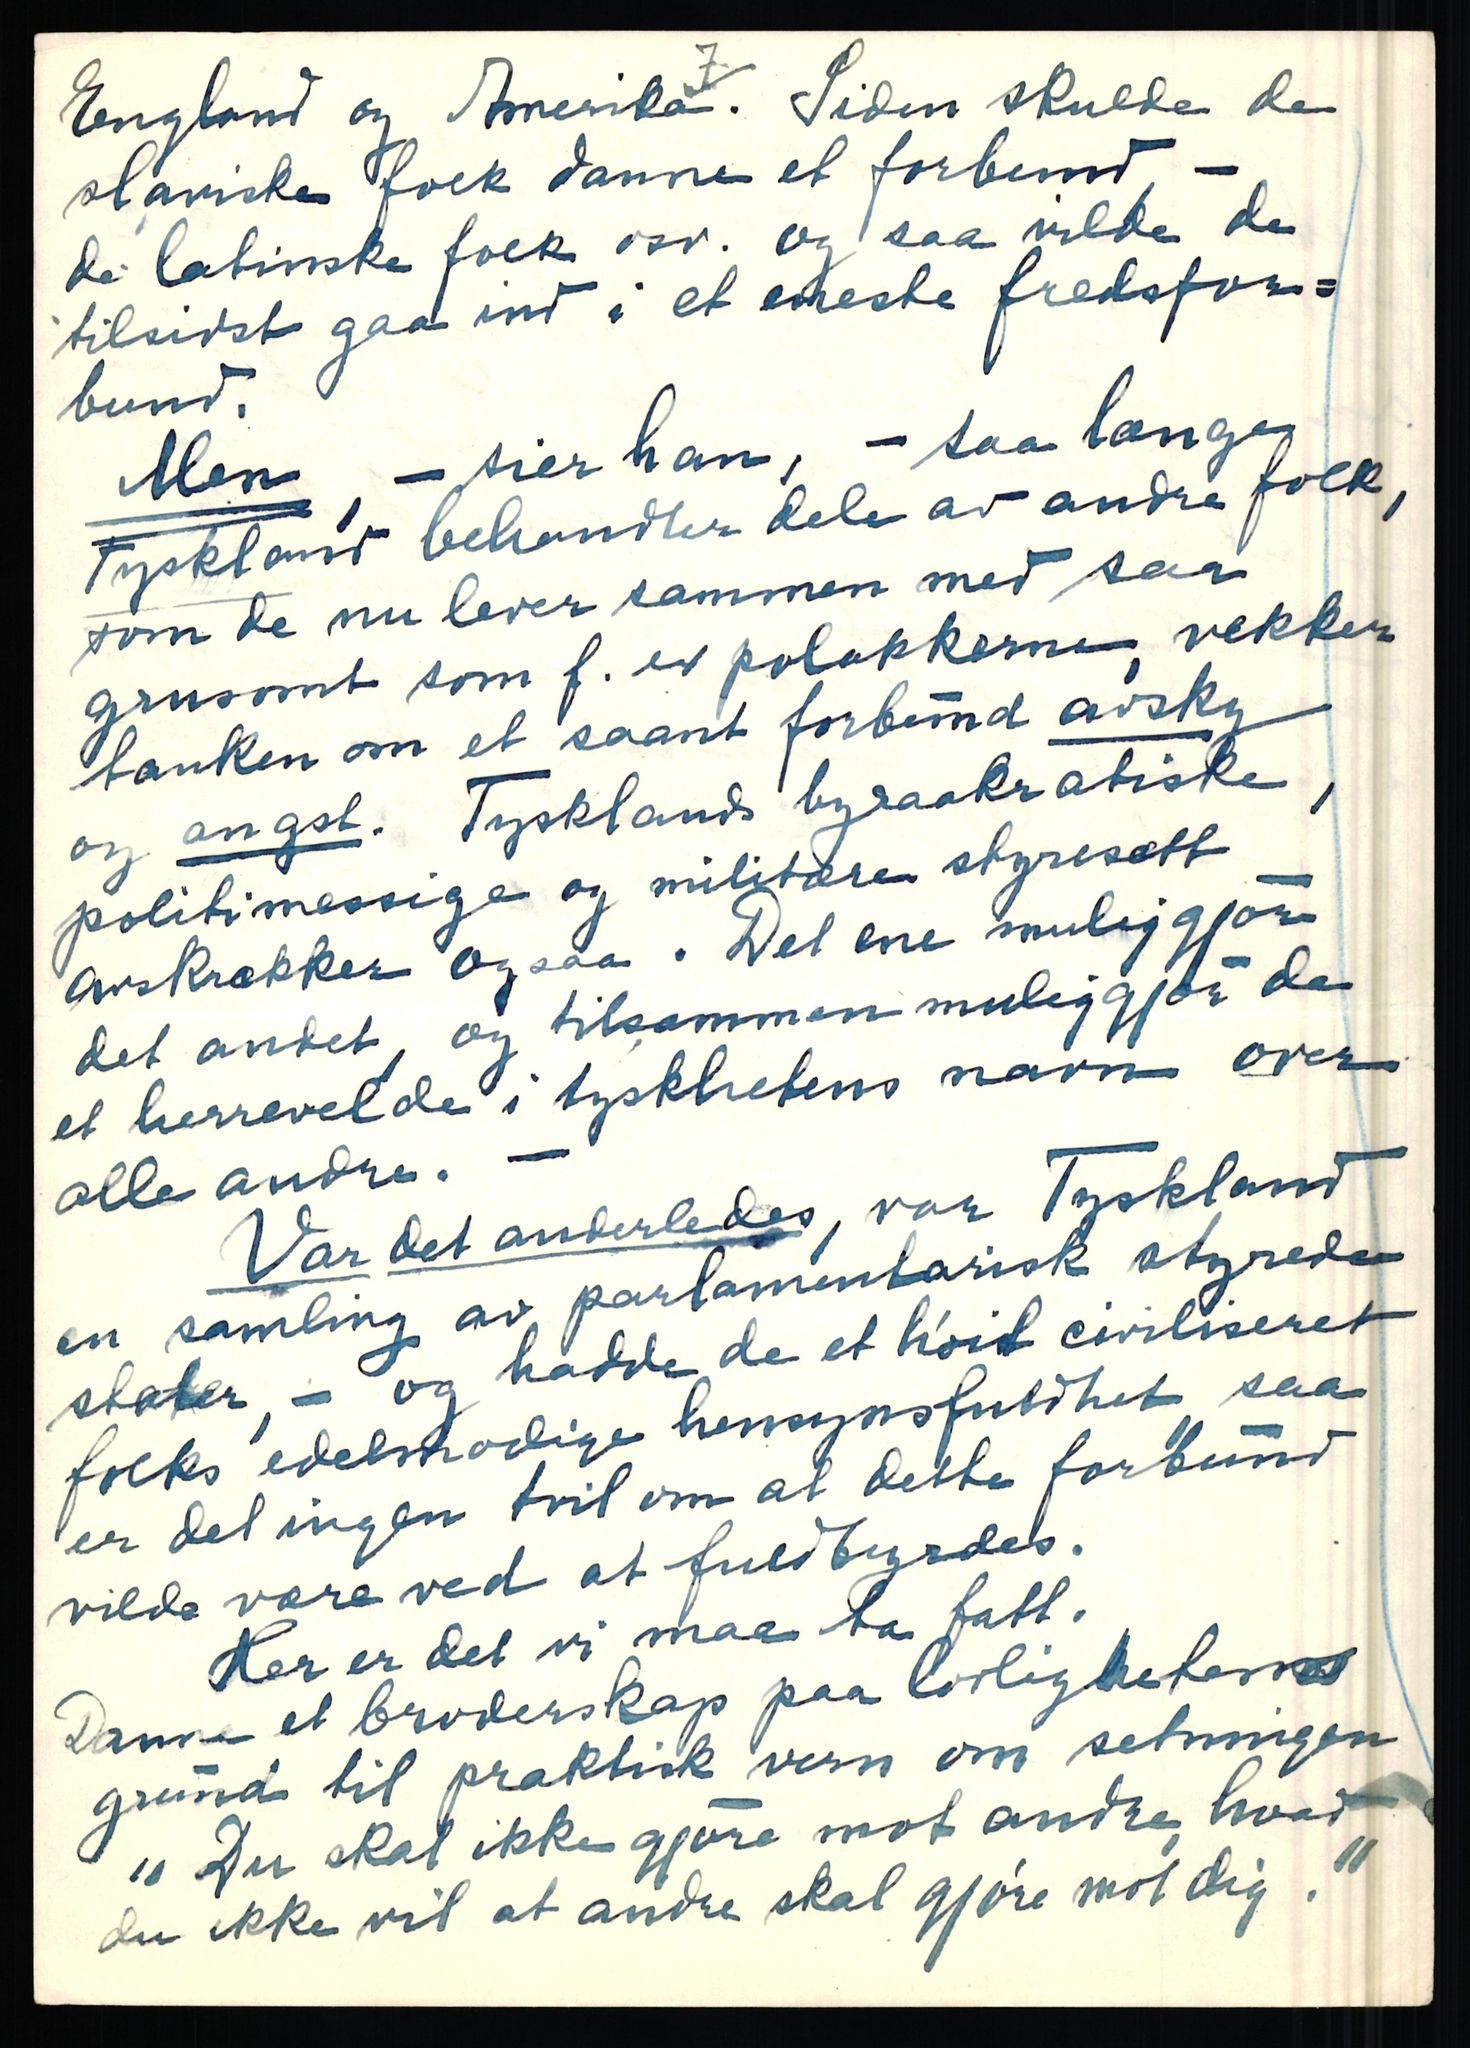 7
England og Amerika. Siden skulde de
slaviske folk danne et forbund, –
de latinske folk osv. og saa vilde de
tilsidst gaa ind i et eneste fredsfor=
bund.
Men, – sier han, – saa længe
Tyskland behandler dele av andre folk,
som de nu lever sammen med saa
grusomt som f. ex polakkerne, vekker
tanken om et saant forbund avsky
og angst. Tysklands byraakratiske,
politimessige og militære styresett
avskrækker ogsaa. Det ene muliggjör
det andet, og tilsammen muliggjör de
et herrevelde i tyskhetens navn over
alle andre. –
Var det anderledes, var Tyskland
en samling av parlamentarisk styrede
stater, – og hadde de et höit civiliseret
folks edelmodige hensynsfuldhet, saa
er det ingen tvil om at dette forbund
vilde være ved at fuldbyrdes.
Her er det vi maa ta fatt.
Danne et broderskap paa lovlighetens
grund til praktisk vern om setningen
"Du skal ikke gjöre mot andre, hvad
du ikke vil at andre skal gjöre mot dig."